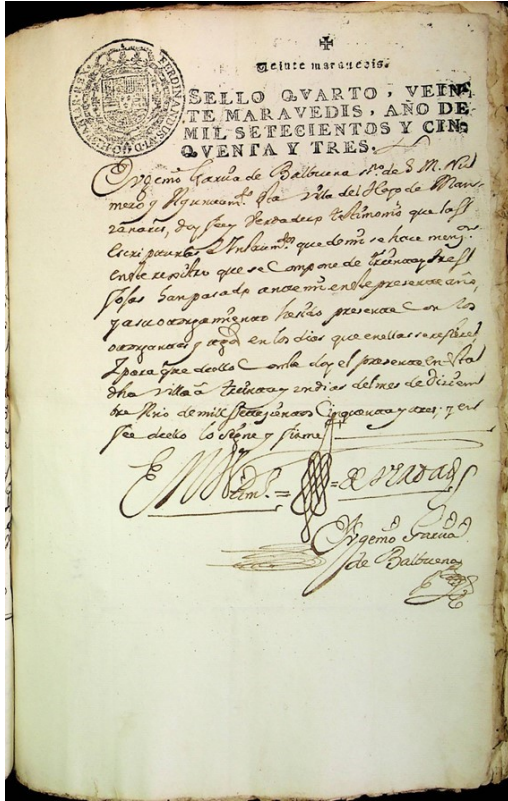 Veinte maravedis.
SELLO QVARTO, VEIN-
TE MARAVEDIS, AÑO DE
MIL SETECIENTOS Y CIN-
QVENTA Y TRES.
Eugenio Garcia de Balbuena ssno. de S. M. Nu
mero y Ayuntamto. desta villa del Hoyo de Man
zanares, doy fee y Verdadero testimonio que las
Escripturas e Instrumtos. que de mi se hace menzn.
en este rexistro que se Compone de treinta y tres
fojas han pasado ante mi en este presente año,
y a su otorgamiento he sido presente con los
otorgantes y tgos. en los dias que en ellas se refiere
Y para que de ello Conste doy el presente en esta
dha villa a treinta y un dias del mes de Diciem
bre Año de mil setezientos Cinquenta y tres; y en
fee de ello lo signe y firme
En testimo. = = de Verdad
Eugenio Garcia
de Balbuena